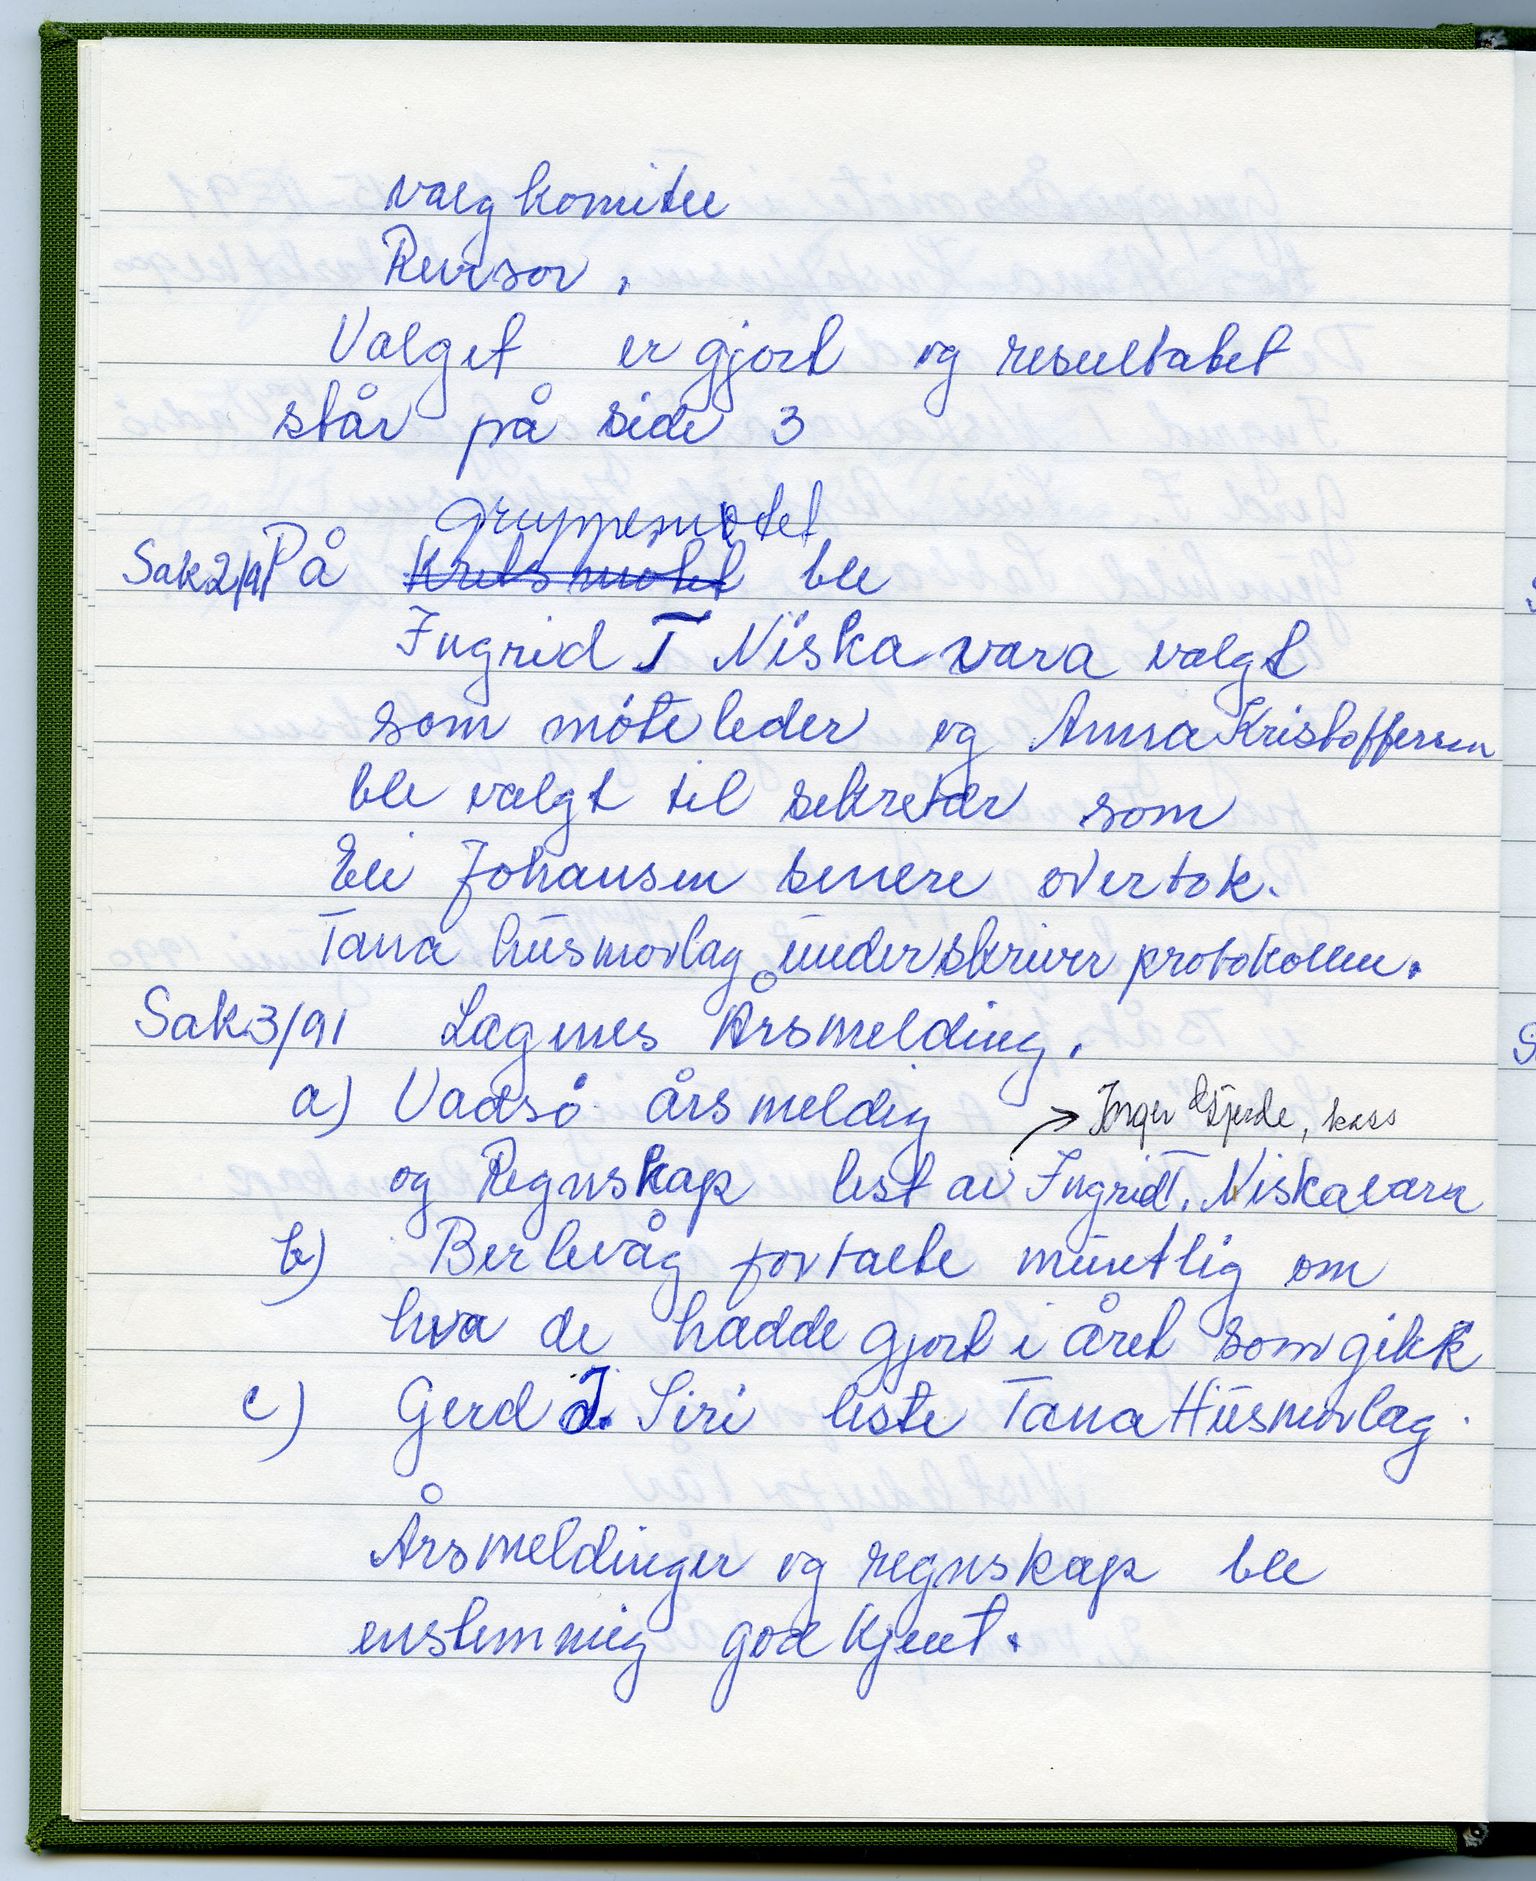 valgkomitee
Revisor.
Valget er gjort og resultatet
står på side 3
Gruppemøtet
Sak 2/91 På Kretsmøtet ble
Ingrid T Niskavara valgt
som møteleder og Anna Kristoffersen
ble valgt til sekretær som
Eli Johansen senere overtok.
Tana husmorlag underskriver protokollen.
Sak 3/91 Lagenes Årsmelding.
a) Vadsø årsmeldig
→ Inger Gjerde, kass
og Regnskap lest av Ingrid T. Niskavara
b) Berlevåg fortalte muntlig om
hva de hadde gjort i året som gikk
c) Gerd J. Siri leste Tana Husmorlag.
Årsmeldinger og regnskap ble
enstemmig godkjent.